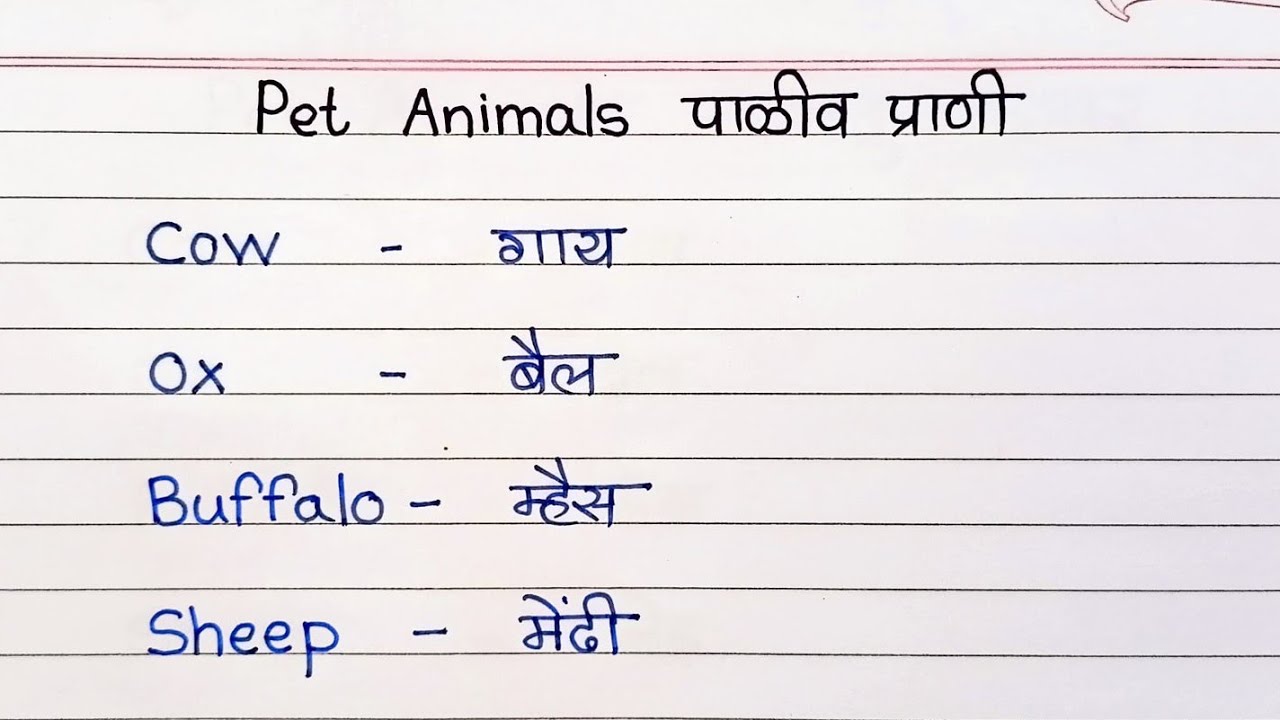 Pet Animals पाळीव प्राणी
Cow - गाय
Ox - बैल
Buffalo - म्हैस
Sheep - मेंढी